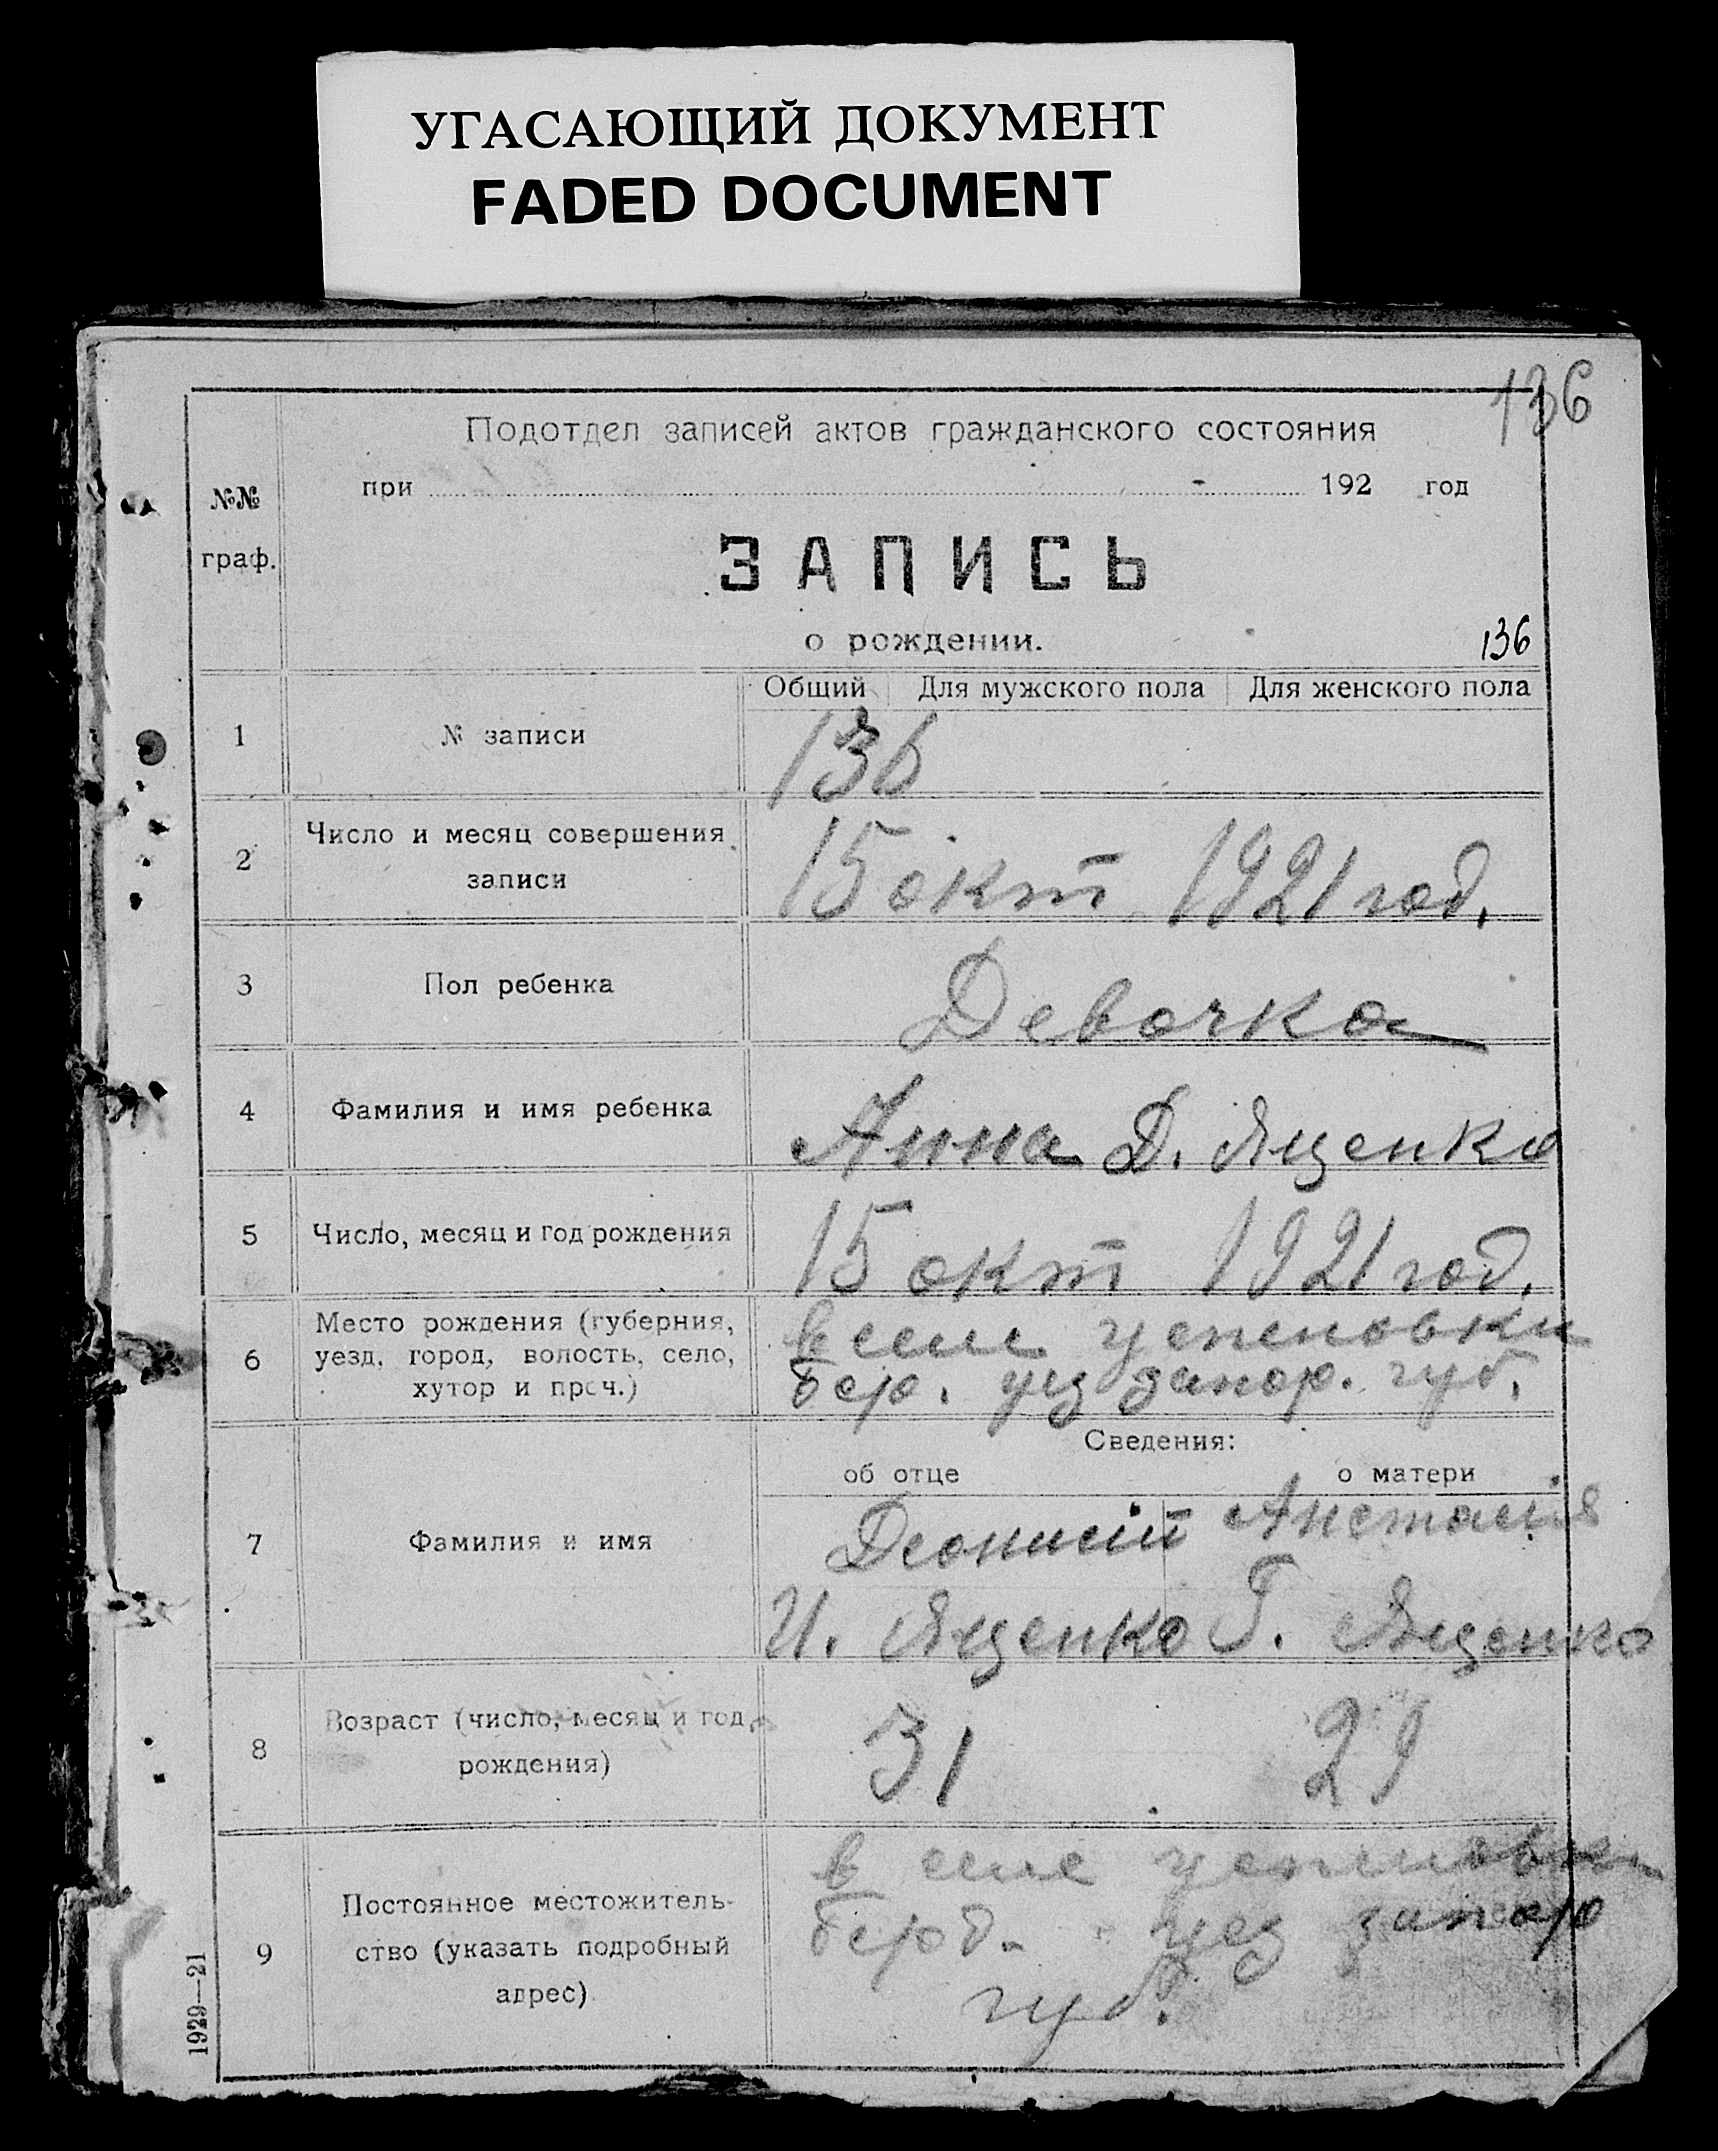 УГАСАЮЩИЙ ДОКУМЕНТ
FADED DOCUMENT
136
Подотдел записей актов гражданского состояния
при 192 год
№№
граф.
ЗАПИСЬ
о рождении.
136
Общий Для мужского пола Для женского пола
1 № записи 136
2 Число и месяц совершения
записи
15 окт 1921 год.
3 Пол ребенка Девочка
4 Фамилия и имя ребенка Анна Д. Яценко
5 Число, месяц и год рождения 15 окт 1921 год.
6 Место рождения (губерния,
уезд, город, волость, село,
хутор и проч.)
в селе
бер. уез запор. губ.
Сведения:
об отце о матери
7 Фамилия и имя
Деонисій Анстасія
И. Яценко Г. Яценко
8 Возраст (число, месяц и год
рождения)
31 29
9 Постоянное местожитель-
ство (указать подробный
адрес)
в селе
берд. уез запор
губ.
1929—21